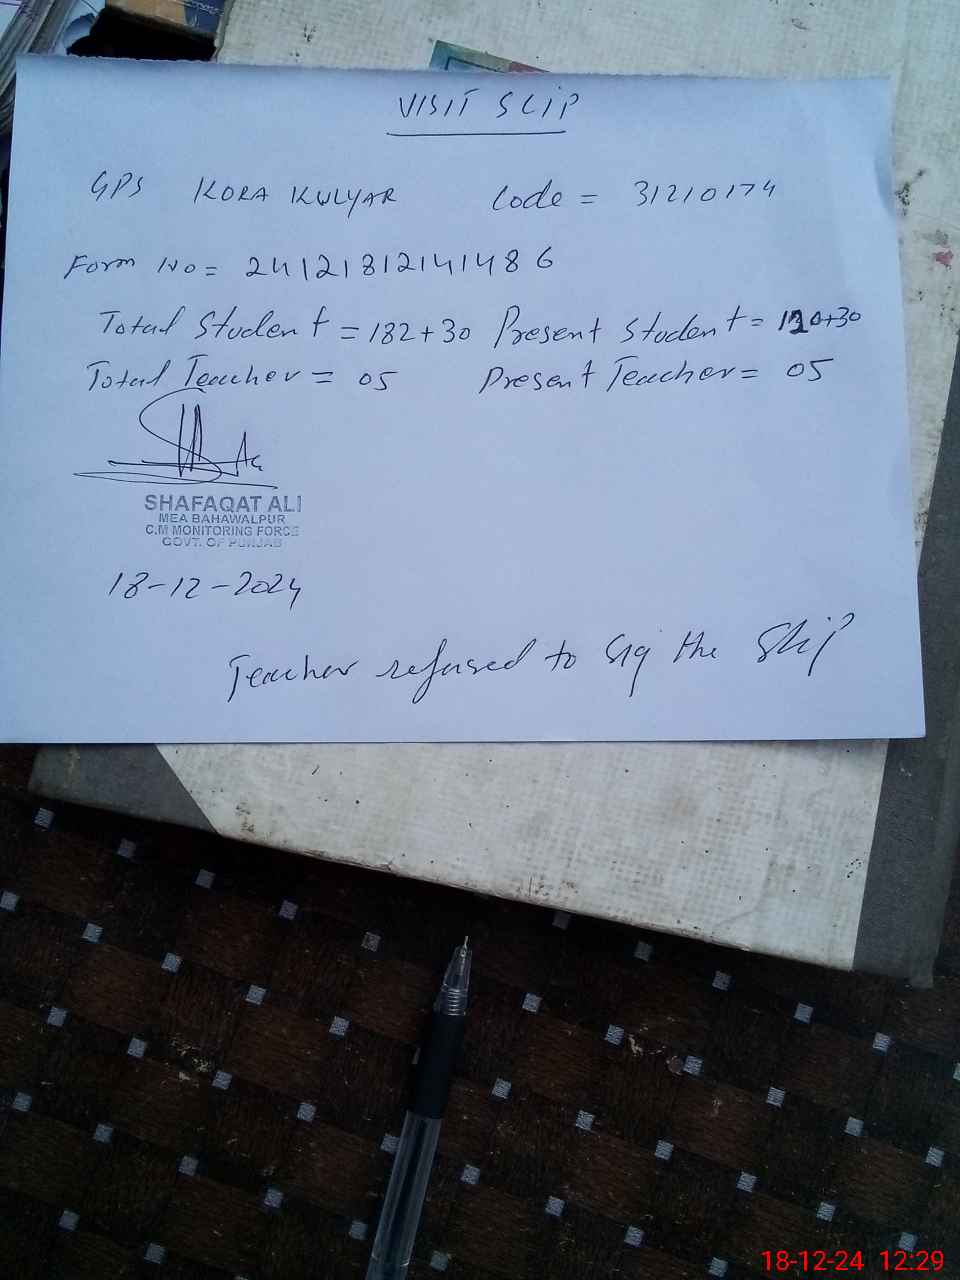 VISIT SLIP
GPS KORA KULYAR Code = 31210174
Form No = 24121812141486
Total Student = 182+30 Present Student = 120+30
Total Teacher = 05 Present Teacher = 05
SHAFAQAT ALI
MEA BAHAWALPUR
C.M MONITORING FORCE
GOVT. OF PUNJAB
18-12-2024
Teacher refused to sig the Slip
18-12-24 12:29